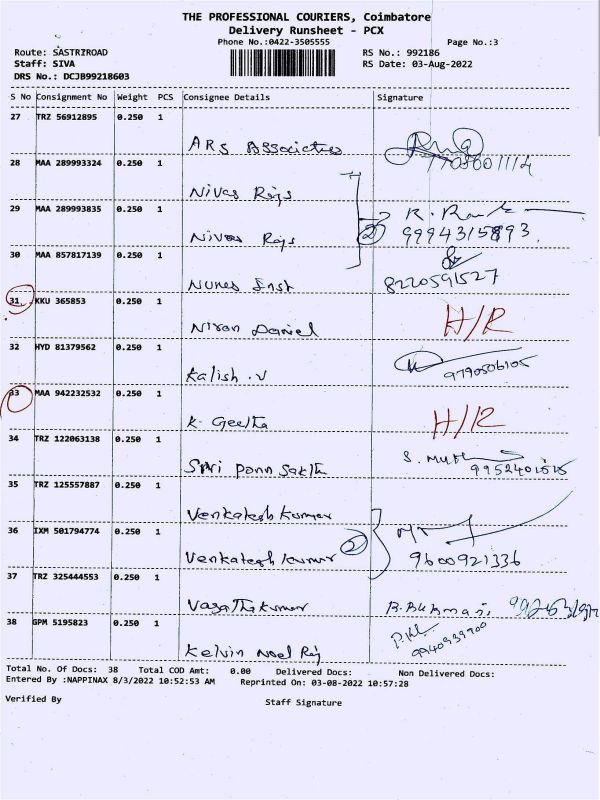 THE PROFESSIONAL COURIERS, Coimbatore
Delivery Runsheet - PCX
Phone No.:0422-3505555
Page No.:3
Route: SASTRIROAD
RS No.: 992186
Staff: SIVA
RS Date: 03-Aug-2022
DRS No.: DCJB99218603
S No Consignment No Weight PCS Consignee Details Signature
27 TRZ 56912895 0.250 1
ARS Associates
28 MAA 289993324 0.250 1
Nivas Rajs
29 MAA 289993835 0.250 1
R. 
Nivas Rajs 2 9994315893
30 MAA 857817139 0.250 1
Nunes Inst 8220591527
31 KKU 365853 0.250 1
Niran Daniel H/R
32 HYD 81379562 0.250 1
Kalish .V 9790506105
33 MAA 942232532 0.250 1
K. Geetha H/R
34 TRZ 122063138 0.250 1
S. Muth
Sri Ponn Sakthi
35 TRZ 125557887 0.250 1
Venkatesh Kumar
36 IXM 501794774 0.250 1
Venkatesh Kumar 2 9600921336
37 TRZ 325444553 0.250 1
Vasanthakumar
38 GPM 5195823 0.250 1
Kelvin Noel Raj
Total No. Of Docs: 38 Total COD Amt: 0.00 Delivered Docs: Non Delivered Docs:
Entered By :NAPPINAX 8/3/2022 10:52:53 AM Reprinted On: 03-08-2022 10:57:28
Verified By Staff Signature